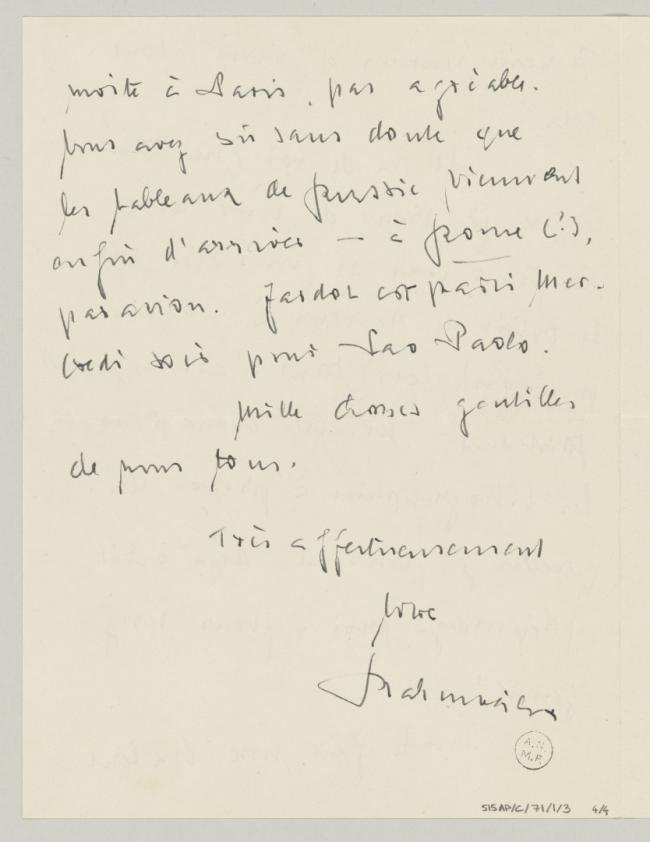 moite à Paris, pas agréable.
Vous avez su sans doute que
les tableaux de Russie viennent
enfin d'arriver — à Rome (!),
par avion. Jardot est parti mer-
credi soir pour Sao Paolo.
Mille choses gentilles
de nous tous.
Très affectueusement
votre
Kahnweiler
A.N.
M.P.
515AP/C/71/1/3 4/4